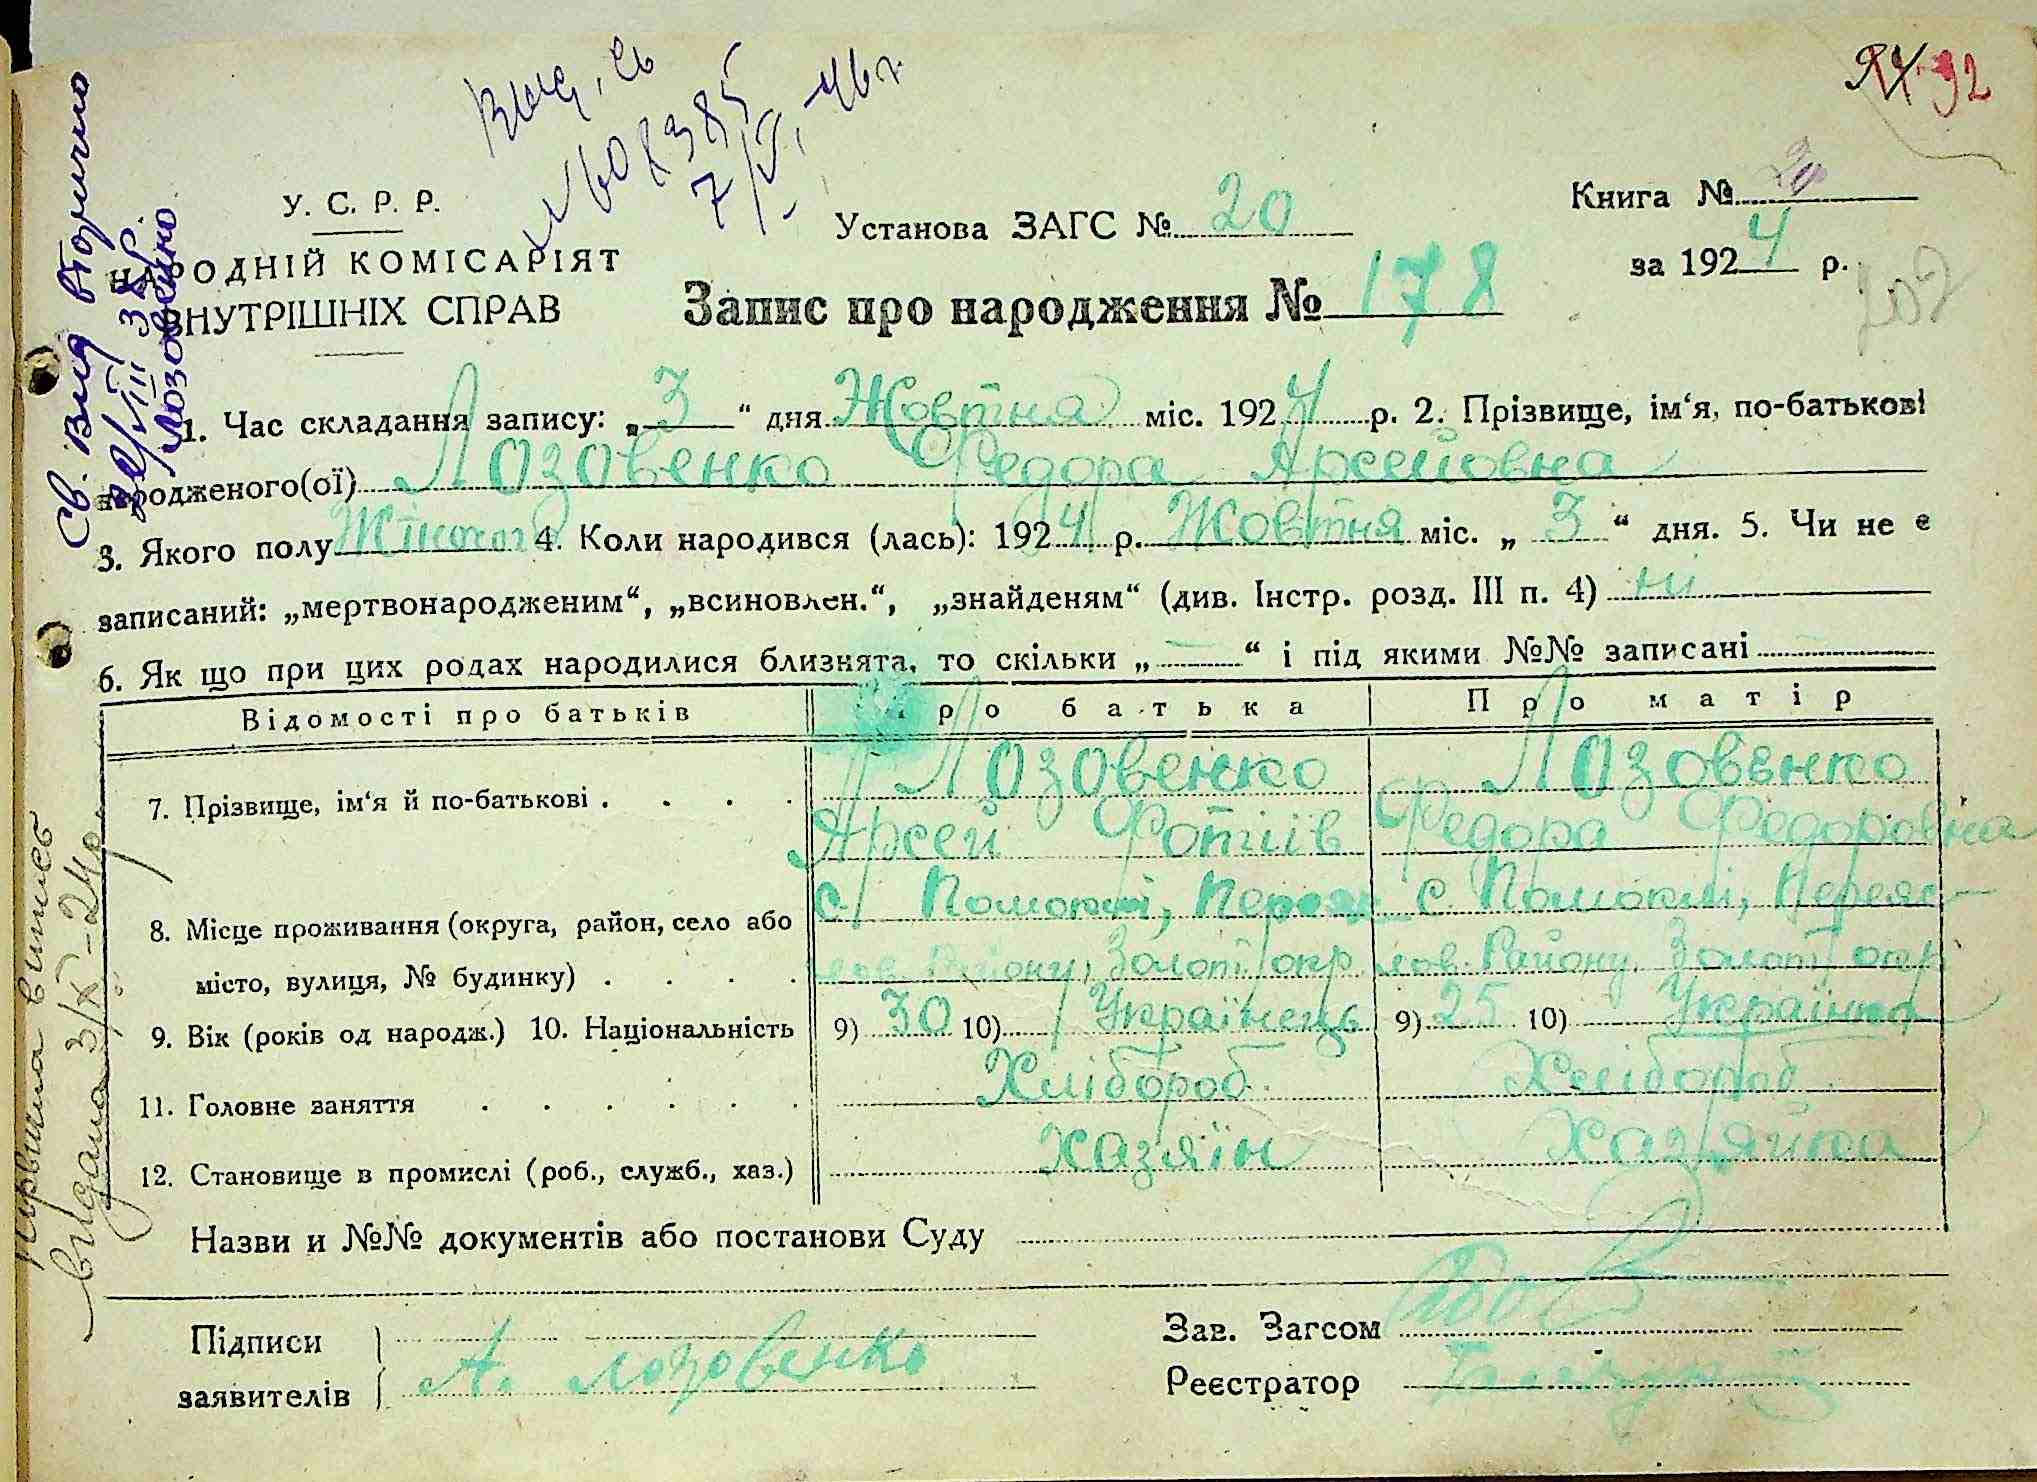 91 92
№ 608385
7/V. 46 г.
Св. вид вторично
22/VIII 38 р.
Лозовенко
У. С. Р. Р.
НАРОДНІЙ КОМІСАРІЯТ
ВНУТРІШНІХ СПРАВ
Установа ЗАГС № 20
Книга № 20
за 1924 р.
207
Запис про народження № 178
1. Час складання запису: „3“ дня Жовтня міс. 1924 р. 2. Прізвище, ім‘я, по-батькові
народженого(ої) Лозовенко Федора Арсейовна
3. Якого полу Жіночого 4. Коли народився (лась): 1924 р. Жовтня міс. „3“ дня. 5. Чи не є
записаний: „мертвонародженим“, „всиновлен.“, „знайденям“ (див. Інстр. розд. III п. 4) ні
6. Як що при цих родах народилися близнята, то скільки „—“ і під якими №№ записані —
Відомості про батьків Про батька Про матір
7. Прізвище, ім‘я й по-батькові . . . . Лозовенко Лозовенко
Арсей Фотіїв Федора Федоровна
8. Місце проживання (округа, район, село або с. Помоклі, Переяс- с. Помоклі, Переяс-
місто, вулиця, № будинку) . . . . лов. Району, Золот. окр. лов. Району, Золот. окр.
9. Вік (років од народж.) 10. Національність 9) 30 10) Українець 9) 25 10) Українка
11. Головне заняття . . . . . . Хлібороб Хлібороб
12. Становище в промислі (роб., служб., хаз.) хазяїн Хазяйка
Назви и №№ документів або постанови Суду
Підписи
заявителів А. Лозовенко
Зав. Загсом
Реєстратор
Первісна випись
видана 3/X-24 р.